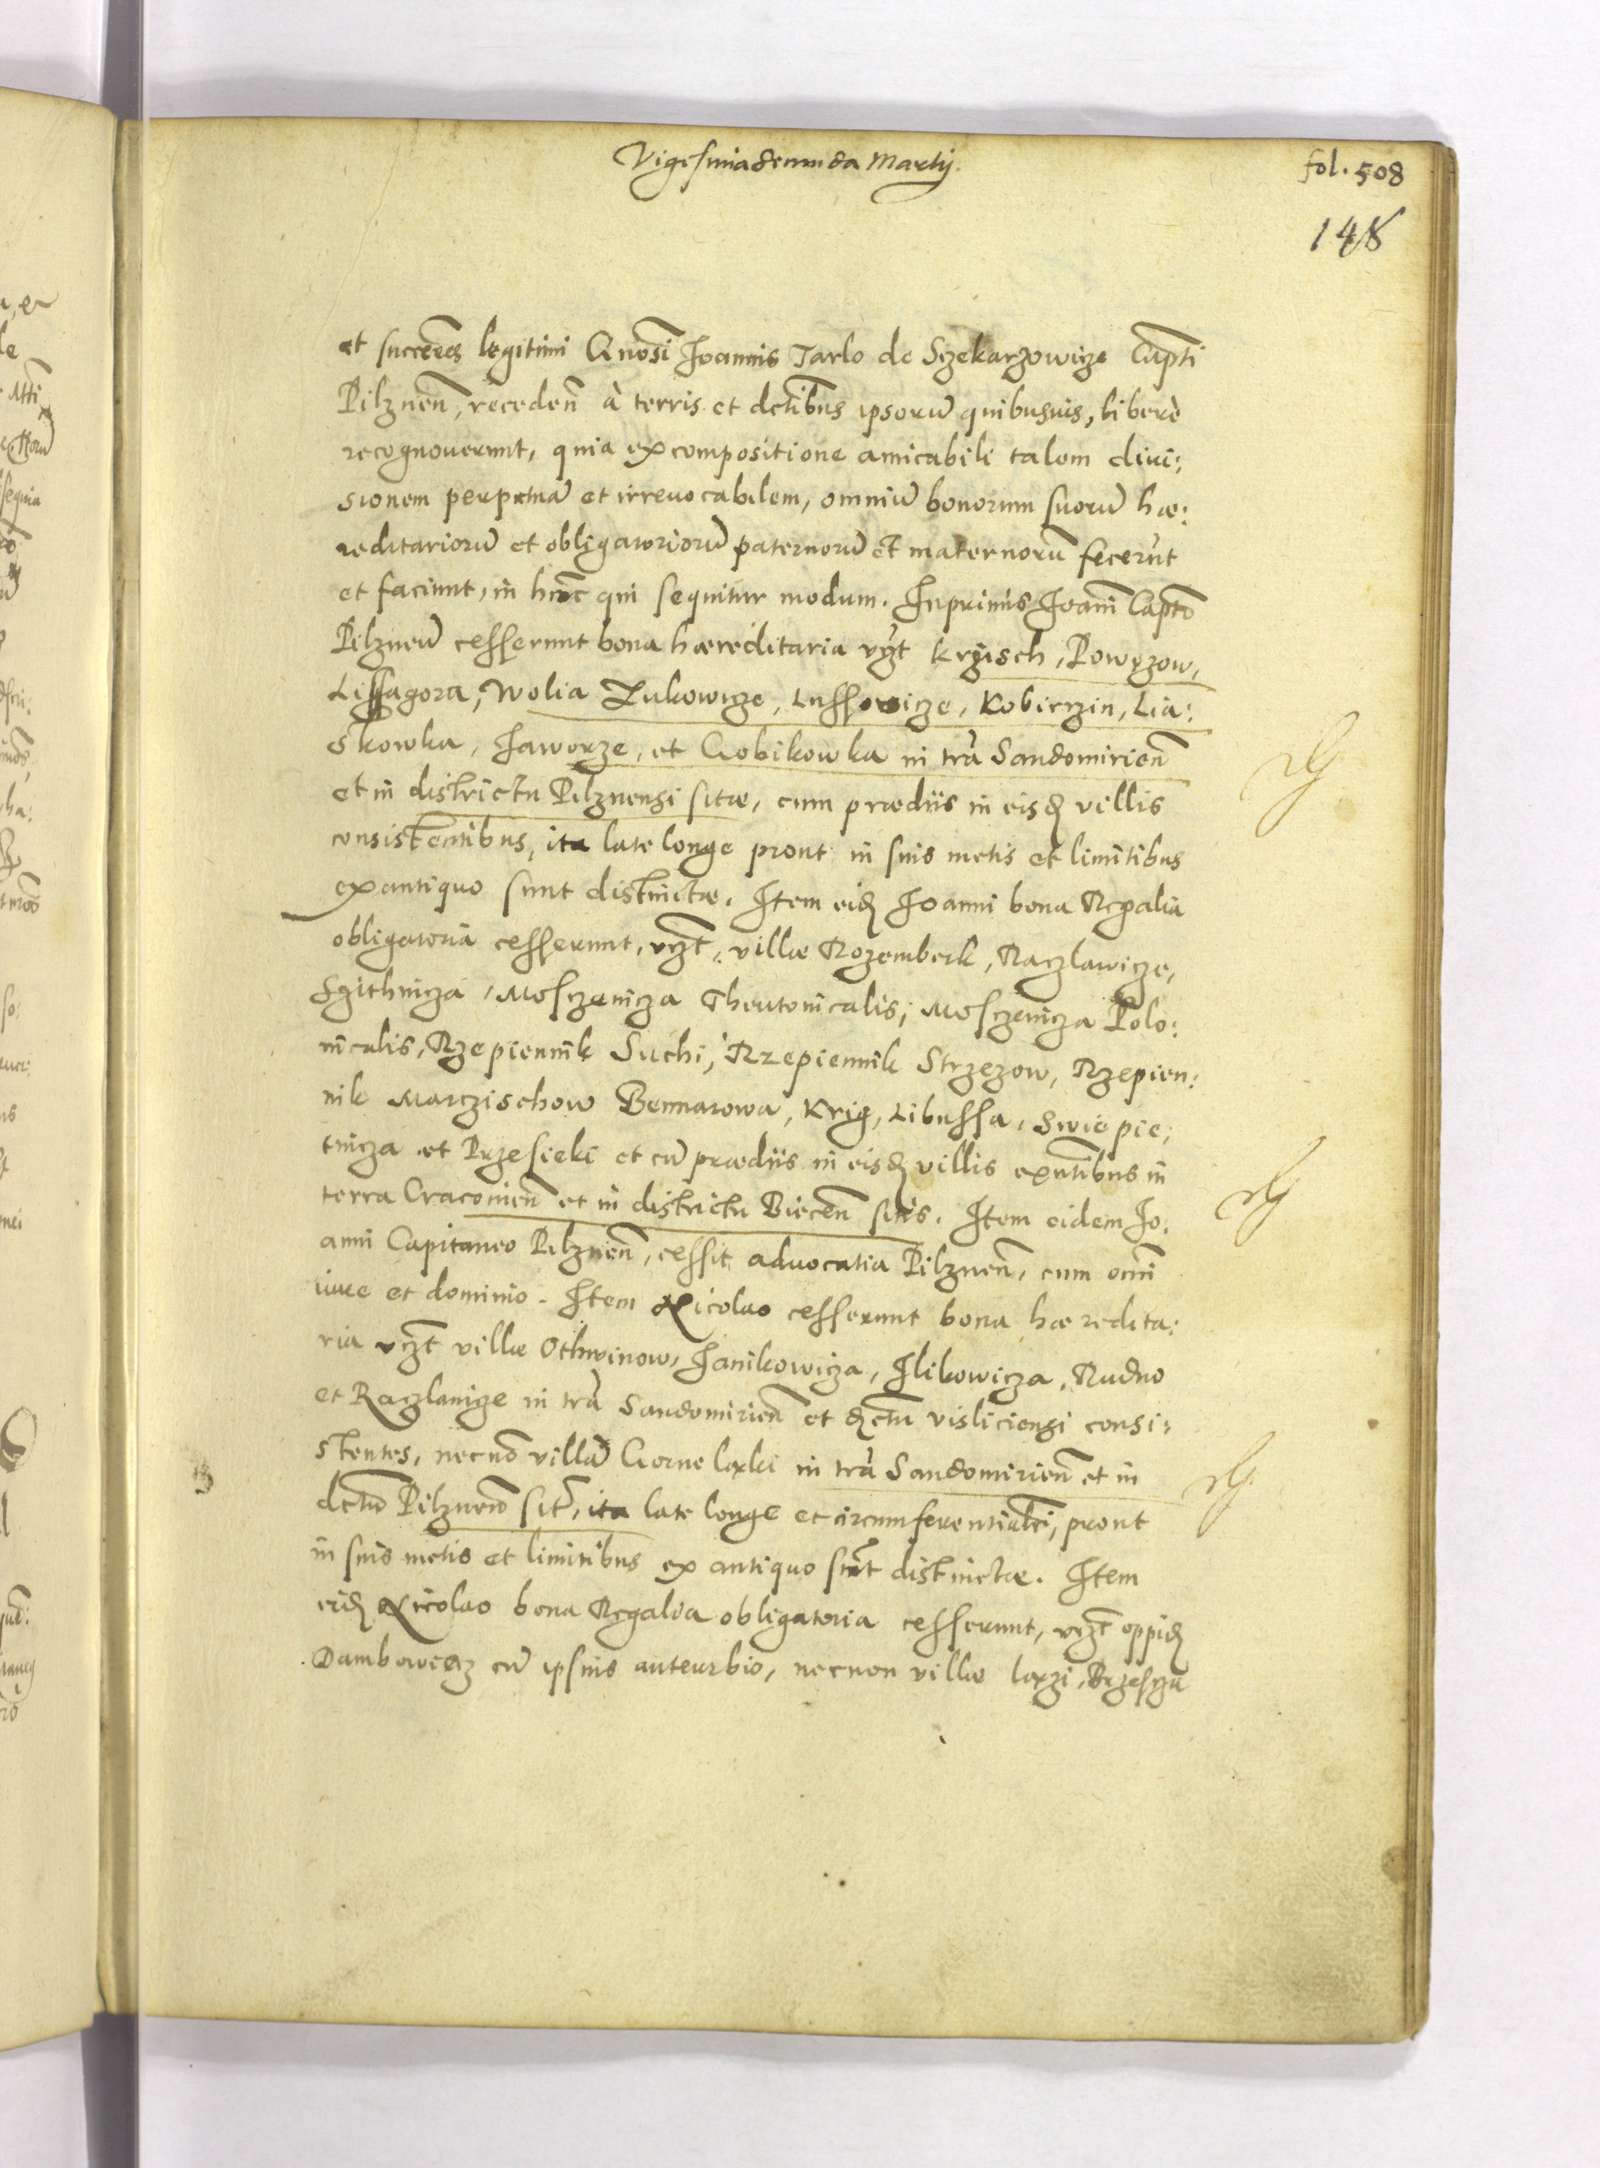 Vigesimasecunda Martij.
fol. 508
148
et succēēs legitimi Gnōsi Joannis Tarlo de Szekarzowicze Capti
Pilznēn, recedēn à terris et dctībus ipsorū quibusuis, liberè
recognouerunt, quia ex compositione amicabili talem diui:
sionem perpetuā et irreuocabilem, omniū bonorum suorū hæ:
reditariorū et obligatoriorū paternorū et maternorū fecerūt
et faciunt, in hūc qui sequitur modum. Inprimis Joāni Captō
Pilznēn cesserunt bona hæreditaria vzt Kryisch, Powęzow,
Lissagora, Wolia Lukowicze, Lussowicze, Kobierzin, Lia:
skowka, Jaworze, et Gobikowka in trā Sandomiriēn
et in districtu Pilznensi sitæ, cum prædiis in eisd villis
consistentibus, ita late longe prout in suis metis et limitibus
ex antiquo sunt distinctæ. Item eid Joanni bona Regalia
obligatoria cesserunt, vzt, villæ Rozemberk, Raczlawicze,
Szithnicza, Mosczenicza Theutonicalis, Mosczenicza Polo:
nicalis, Rzepiennik Suchi, Rzepiennik Strzezow, Rzepien:
nik Marczischow Bennarowa, Krig, Libussa, Swiepie:
tnicza et Przesieki et cū prædiis in eisd villis exntībus in
terra Cracouiēn et in districtu Biecēn sitis. Item eidem Jo:
anni Capitaneo Pilznēn, cessit aduocatia Pilznēn, cum omī
iure et dominio. Item Nicolao cesserunt bona hæredita:
ria vzt villæ Othwinow, Janikowicza, Ilikowicza, Rudno
et Raczlauicze in trā Sandomiriēn et dctu visliciensi consi:
stentes, necnō villā Gorne laxki in trā Sandomiriēn et in
dctū Pilznēn sit, ita late longe et circumferentialr, prout
in suis metis et limitibus ex antiquo sūt distinctæ. Item
eid Nicolao bona Regalia obligatoria cesserunt, vzt oppid
Dambowiecz cū ipsius anteurbio, necnon villæ laxzi, Brzescza